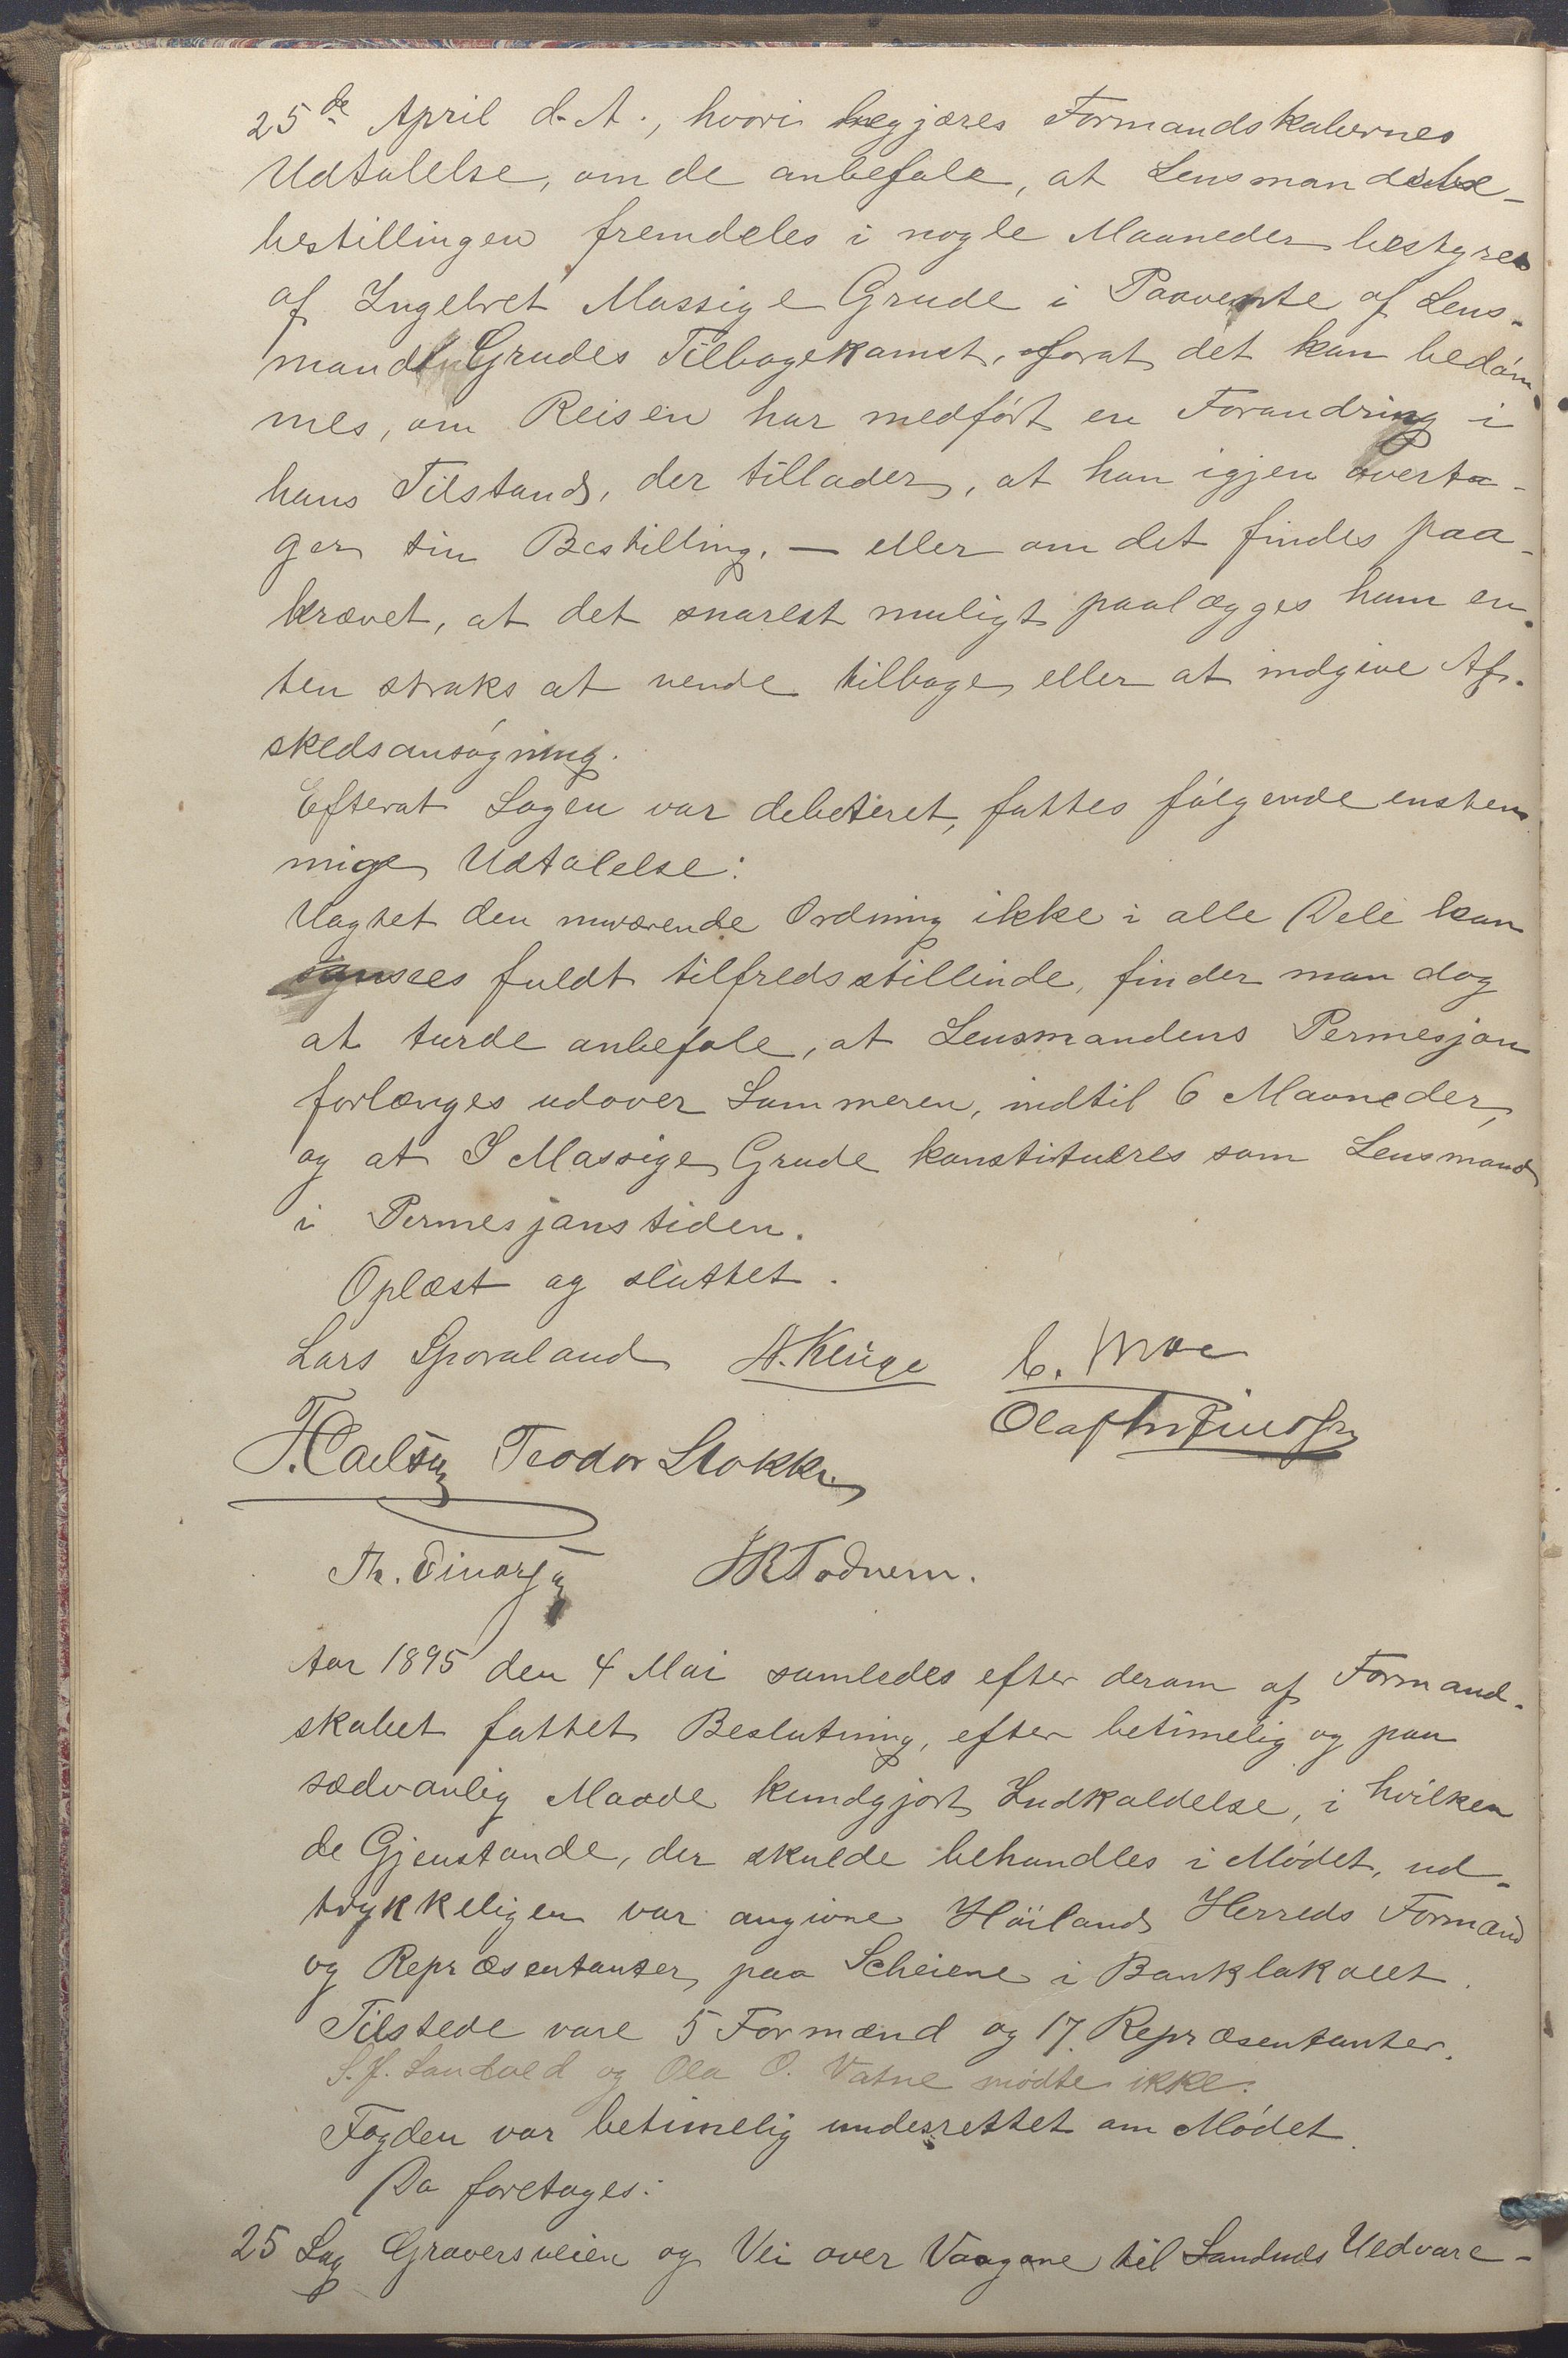 25de April d. A., hvori begjæres Formandskabernes
Udtalelse, om de anbefale, at Lensmands
bestillingen fremdeles i nogle Maaneder bestyres
af Ingebret Massige Grude i Paavente af Lens-
mand Grudes Tilbagekomst, forat det kan bedøm-
mes, om Reisen har medført en Forandring i
hans Tilstand, der tillader, at han igjen overta-
ger sin Bestilling, — eller om det findes paa-
krævet, at det snarest muligt paalægges ham en-
ten straks at vende tilbage eller at indgive Af-
skedsansøgning.
Efterat Sagen var debateret, fattes følgende enstem-
mige Udtalelse:
Uagtet den nuværende Ordning ikke i alle Dele kan
ansees fuldt tilfredsstillende, finder man dog
at turde anbefale, at Lensmandens Permesjon
forlænges udover Sommeren, indtil 6 Maaneder,
og at I Massige Grude konstitueres som Lensmand
i Permesjonstiden.
Oplæst og sluttet.
Lars Sporaland A. Kluge C. Moe
T. Carlsen Teodor Stokke Olaf
Th. Einarsen Todnem.
Aar 1895 den 4 Mai samledes efter derom af Formand-
skabet fattet Beslutning, efter betimelig og paa
sædvanlig Maade kundgjort Indkaldelse, i hvilken
de Gjenstande, der skulde behandles i Mødet, ud-
trykkeligen var angivne Høilands Herreds Formænd
og Repræsentanter paa Scheiene i Banklokalet.
Tilstede vare 5 Formænd og 17 Repræsentanter.
S. J. Sandved og Ola O. Vatne mødte ikke.
Fogden var betimelig underrettet om Mødet.
Da foretages:
25 Sag Graversveien og Vei over Vaagane til Sandnds Uldvare-